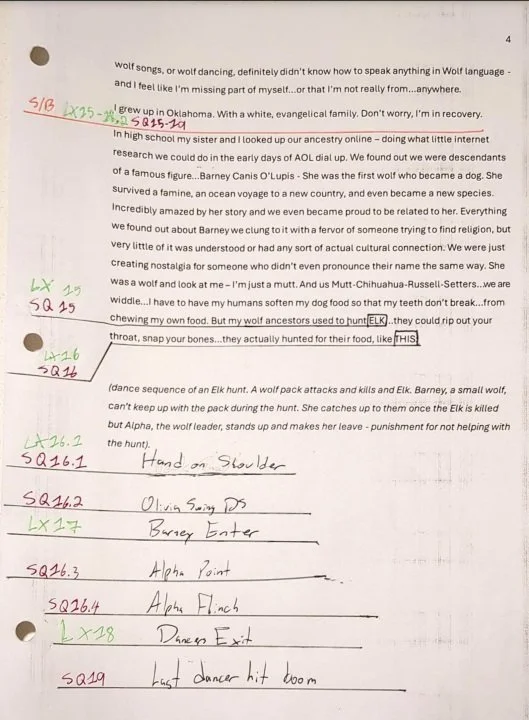 4
wolf songs, or wolf dancing, definitely didn't know how to speak anything in Wolf language -
and I feel like I'm missing part of myself...or that I'm not really from...anywhere.
I grew up in Oklahoma. With a white, evangelical family. Don't worry, I'm in recovery.
S/B LX15-16.2 SQ15-19
In high school my sister and I looked up our ancestry online – doing what little internet
research we could do in the early days of AOL dial up. We found out we were descendants
of a famous figure...Barney Canis O'Lupis - She was the first wolf who became a dog. She
survived a famine, an ocean voyage to a new country, and even became a new species.
Incredibly amazed by her story and we even became proud to be related to her. Everything
we found out about Barney we clung to it with a fervor of someone trying to find religion, but
very little of it was understood or had any sort of actual cultural connection. We were just
creating nostalgia for someone who didn't even pronounce their name the same way. She
was a wolf and look at me – I'm just a mutt. And us Mutt-Chihuahua-Russell-Setters...we are
widdle...I have to have my humans soften my dog food so that my teeth don't break...from
LX 15
SQ 15
chewing my own food. But my wolf ancestors used to hunt ELK...they could rip out your
throat, snap your bones...they actually hunted for their food, like THIS
LX16
SQ16
(dance sequence of an Elk hunt. A wolf pack attacks and kills and Elk. Barney, a small wolf,
can't keep up with the pack during the hunt. She catches up to them once the Elk is killed
but Alpha, the wolf leader, stands up and makes her leave - punishment for not helping with
the hunt).
LX16.2
SQ16.1 Hand on Shoulder
SQ16.2 Olivia Swing DS
LX17 Barney Enter
SQ16.3 Alpha Point
SQ16.4 Alpha Flinch
LX18 Dancers Exit
SQ19 Last dancer hit boom